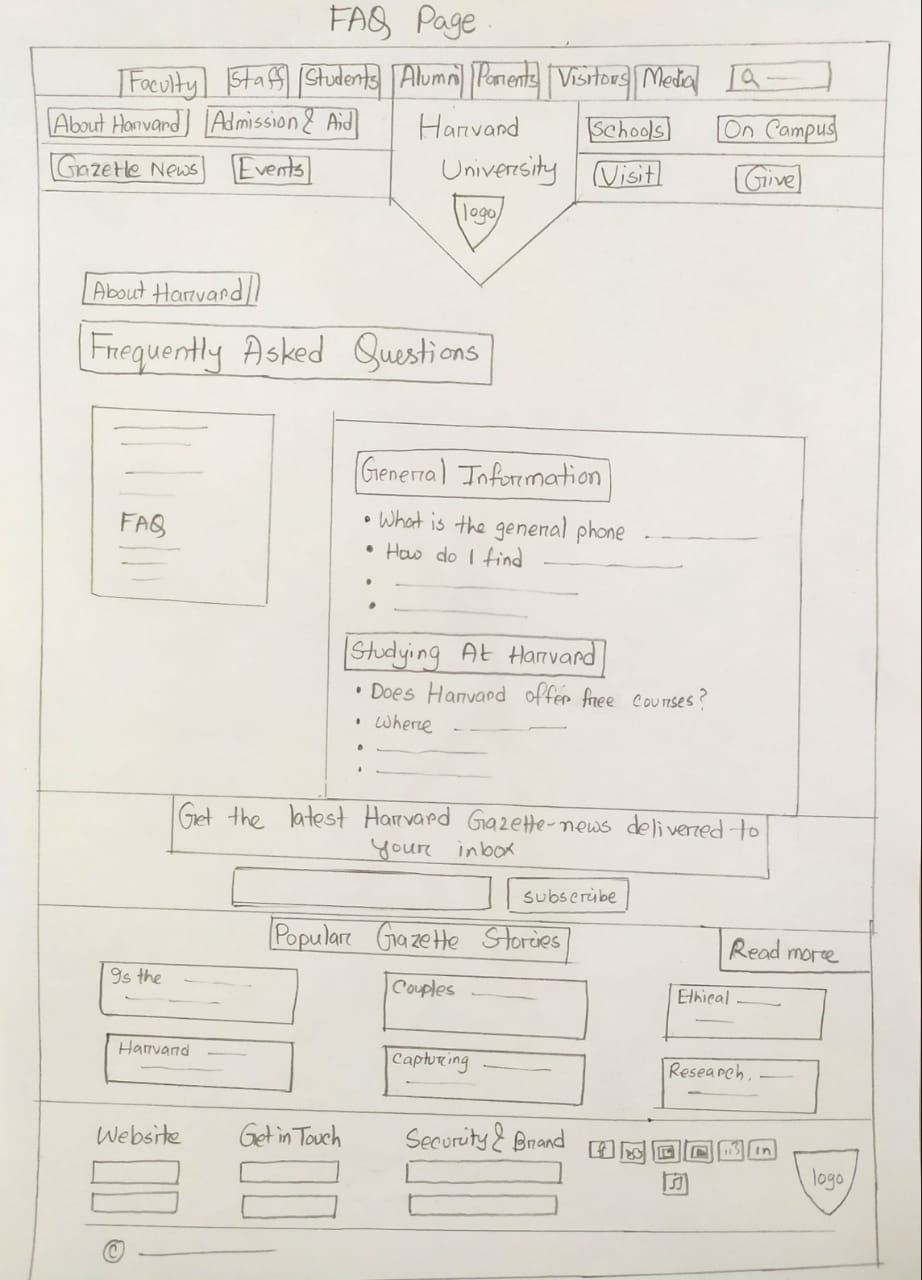 FAQ Page.
Faculty Staff Students Alumni Parents Visitors Media
About Harvard Admission & Aid Harvard Schools On Campus
Gazette News Events University Visit Give
logo
About Harvard
Frequently Asked Questions
General Information
• What is the general phone
FAQ
• How do I find
Studying At Harvard
• Does Harvard offer free courses?
• Where
Get the latest Harvard Gazette-news delivered to
your inbox
subscribe
Popular Gazette Stories Read more
Is the Couples Ethical
Harvard Capturing Research.
Website Get in Touch Security & Brand
in
logo
©